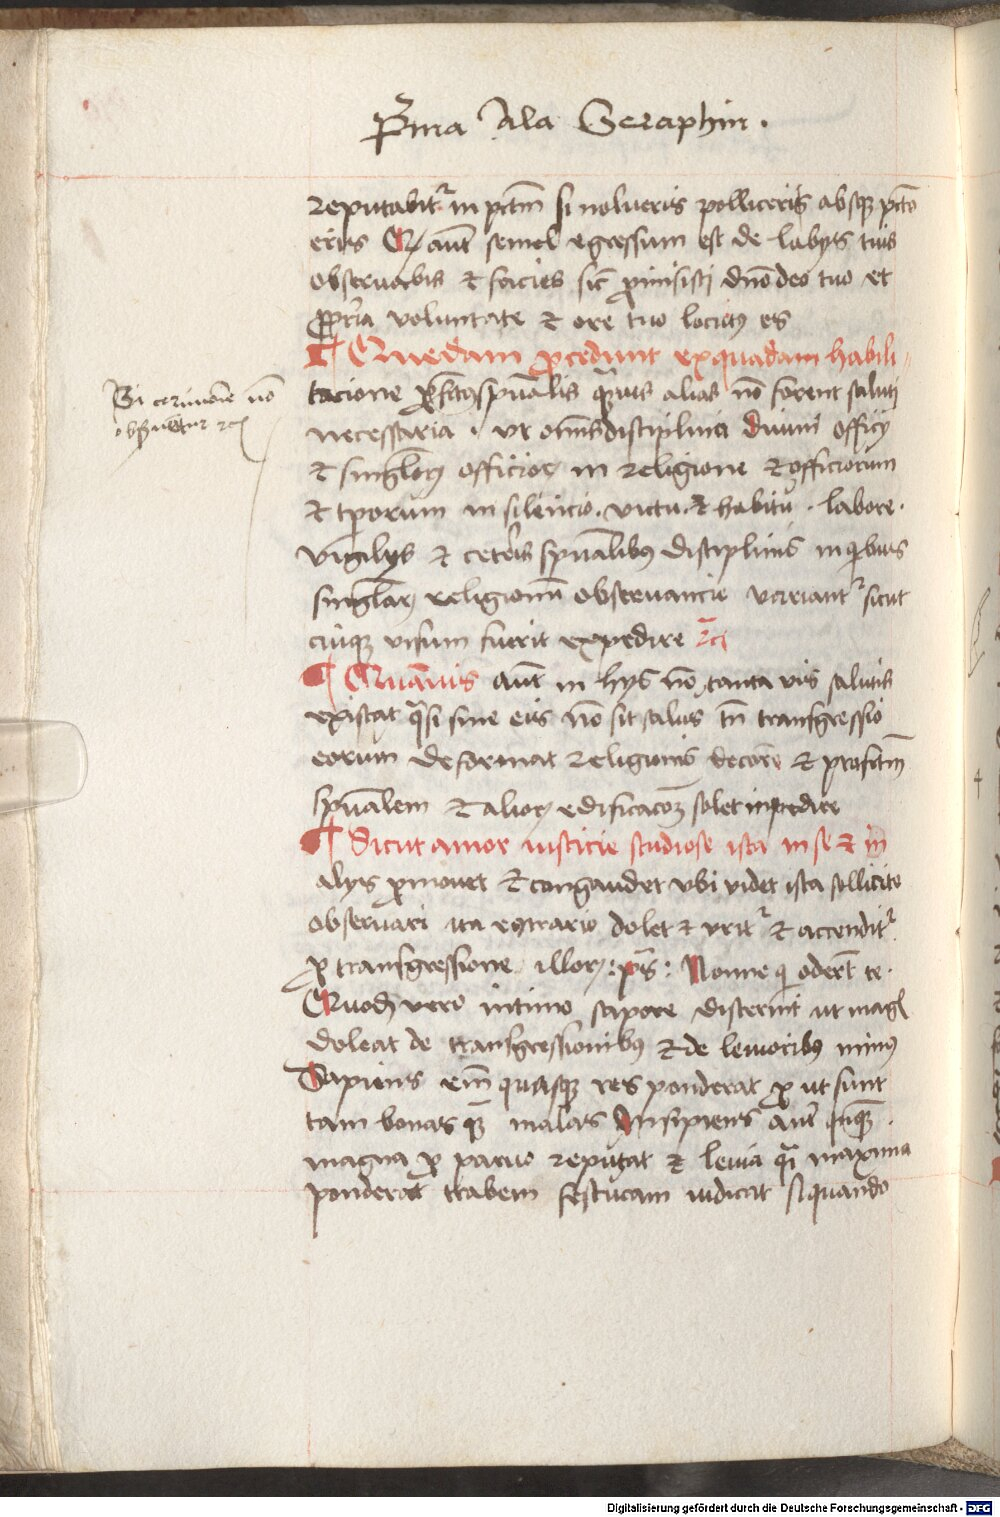 Prima Ala Seraphin .
reputabitr in pctm si nolueris polliceris absqz pcto
eris Q aut semel egressum est de labijs tuis
observabis et facies sic promisisti dno deo tuo et
propria voluntate et ore tuo locutus es
Quedam procedunt ex quadam habili
Si cerimonie no
observantur etc
tacione profectus spualis quamvis alias no forent saluti
necessaria . ut omnis disciplina divini officij
et singlorum officiorum in religione et officiorum
et tporum in silencio . victu . et habitu . labore .
vigilijs et ceteris spualibus disciplinis in quibus
singlarum religionum observancie variantr sicut
cuiqz visum fuerit expedire etc
Quamvis aut in hys no tanta vis salutis
existat quasi sine eis no sit salus tn transgressio
eorum deformat religionis decore et profectum
spualem et aliorum edificacoem solet impedire
Dicit amor iusticie studiose ista in se et in
alijs promovet et congaudet ubi videt ista sollicite
observari ita econtrario dolet et uritr et accenditr
pro transgressione illorum : ps : Nonne qui oderut te .
Quod vero intimo sapore discernit ut magis
doleat de transgressionibus et de levioribus minus
Sapiens em quasqz res ponderat pro ut sunt
tam bonas qz malas Insipiens aut
magna pro parvo reputat et levia quasi maxima
ponderat trabem festucam iudicat aliquando
Digitalisierung gefördert durch die Deutsche Forschungsgemeinschaft - DFG